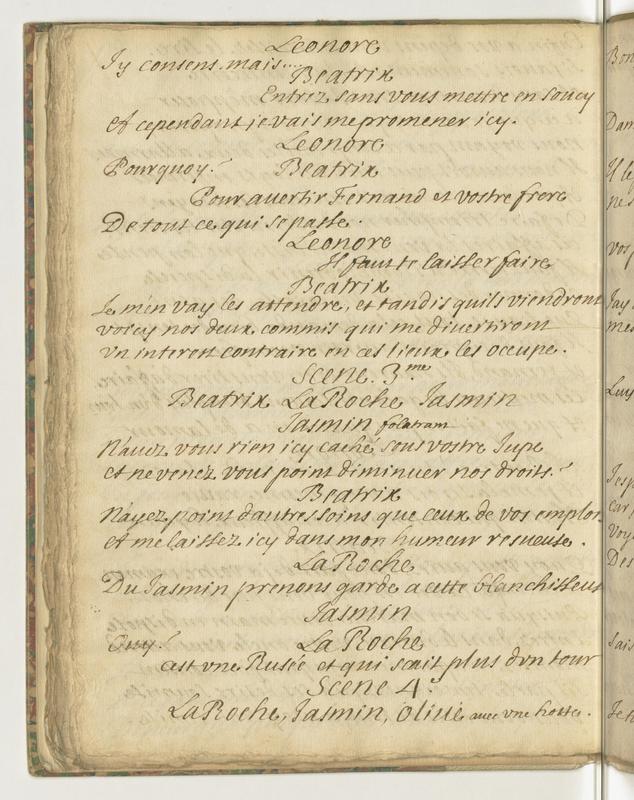 Leonore
J'y consens. mais....
Beatrix
Entrez, sans vous mettre en soucy
Et cependant je vais me promener icy.
Leonore
Pourquoy?
Beatrix
Pour avertir Fernand et vostre frere
De tout ce qui se passe.
Leonore
Il faut te laisser faire
Beatrix
Je m'en vay les attendre, et tandis quils viendront
voicy nos deux commis qui me divertiront
un interest contraire en ces lieux les occupe.
Scene. 3.me
Beatrix LaRoche Jasmin
Jasmin folatram
N'avez vous rien icy caché sous vostre Jupe
et ne venez vous point diminuer nos droits.?
Beatrix
Nayez point dautres soins que ceux de vos emplois
et me laissez icy dans mon humeur resveuse.
LaRoche
Du Jasmin prenons garde a cette blanchisseuse
Jasmin
Ouy?
LaRoche
cest une Rusée et qui scait plus dun tour
Scene 4.e
LaRoche, Jasmin, Olive avec une hotte.
Bon
Dam
Il le
ne s
vos
Jay
mes
Luy
Jesp
car
Voy
Des
Sais
Je